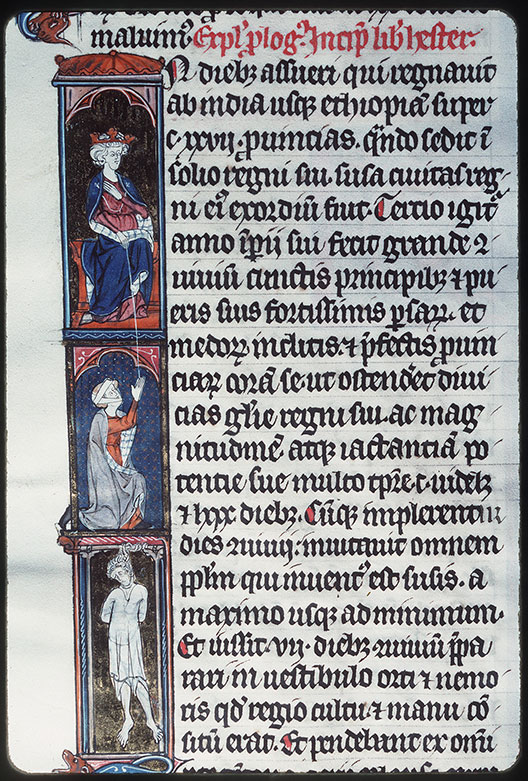 maluimꝰ Explꝰ plogꝰ. Incipͭ libͬ hester.
In diebꝫ assueri qui regnauit
ab india usqꝫ ethiopiā super
c·xxvij·puincias. qn̄do sedit ī
solio regni sui. susa ciuitas reg
ni eiꝰ exordiū fuit. Tercio igitͬ
anno īpij sui fecit grande ꝯ
uiuiū cunctis principibꝫ ⁊ pu
eris suis fortissimis ꝑsaꝝ. et
medoꝝ inclitis. ⁊ p̄fectis puin
ciaꝝ corā se. ut ostenderet diui
cias glīe regni sui. ac mag
nitudinē atqꝫ iactantiā po
tentie sue. multo tp̄re. c. uidelꝫ
⁊ lxxx diebꝫ. Cūqꝫ implerentur
dies ꝯuiuij: inuitauit omnem
pplm̄ qui inuentꝰ est susis. a
maximo usqꝫ ad minimum.
Et iussit. vij. diebꝫ ꝯuiuiū p̄pa
rari in uestibulo orti ⁊ nemo
ris qd̕ regio cultu ⁊ manu cō
situ̅ erat. Et pendebant ex omī